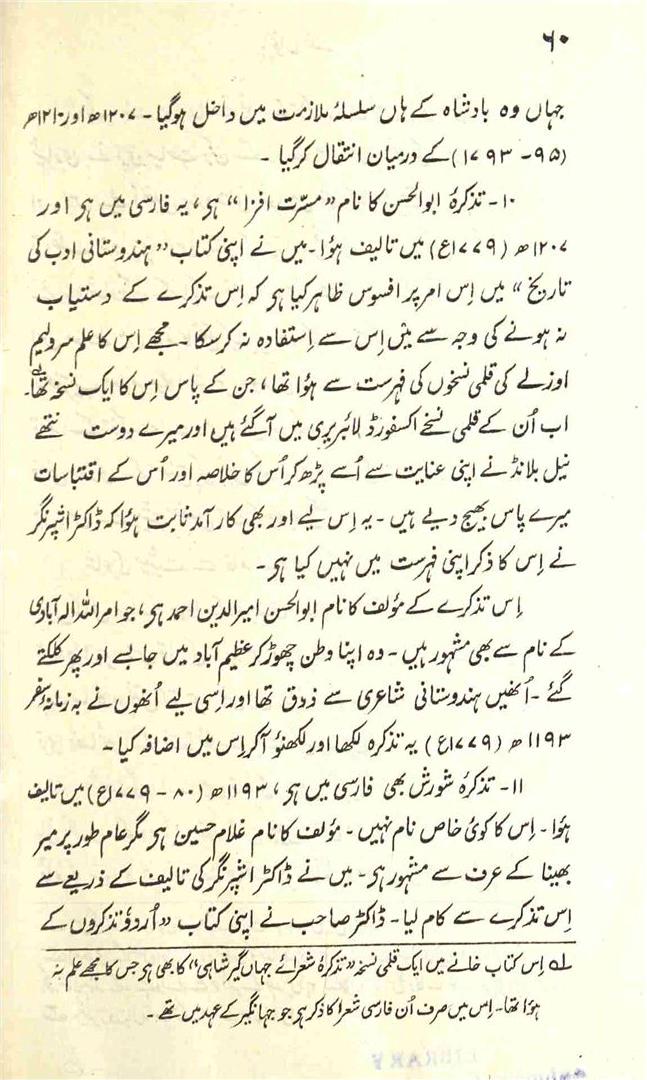 ۶۰
جہاں وہ بادشاہ کے ہاں سلسلۂ ملازمت میں داخل ہوگیا ۔ ۱۲۰۷ھ اور ۱۲۱۰ھ
(۹۵ - ۱۷۹۳) کے درمیان انتقال کرگیا ۔
۱۰- تذکرۂ ابوالحسن کا نام "مسرّت افزا" ہی، یہ فارسی میں ہی اور
۱۲۰۷ھ (۱۷۷۹ع) میں تالیف ہؤا ۔ میں نے اپنی کتاب "ہندوستانی ادب کی
تاریخ" میں اِس امر پر افسوس ظاہر کیا ہی کہ اِس تذکرے کے دستیاب
نہ ہونے کی وجہ سے میں اِس سے اِستفادہ نہ کرسکا ۔ مجھے اِس کا علم سرولیم
اوزلے کی قلمی نسخوں کی فہرست سے ہؤا تھا، جن کے پاس اِس کا ایک نسخہ تھا؎۔
اب اُن کے قلمی نسخے اکسفورڈ لائبریری میں آگئے ہیں اور میرے دوست نتھے
نیل بلانڈ نے اپنی عنایت سے اُسے پڑھ کر اُس کا خلاصہ اور اُس کے اقتباسات
میرے پاس بھیج دیے ہیں ۔ یہ اِس لیے اور بھی کارآمد ثابت ہؤا کہ ڈاکٹر اشپرنگر
نے اِس کا ذکر اپنی فہرست میں نہیں کیا ہی ۔
اِس تذکرے کے مؤلف کا نام ابوالحسن امیرالدین احمد ہی، جو امراللہ الہ آبادی
کے نام سے بھی مشہور ہیں ۔ وہ اپنا وطن چھوڑ کر عظیم آباد میں جابسے اور پھر کلکتے
گئے ۔ اُنھیں ہندوستانی شاعری سے ذوق تھا اور اِسی لیے اُنھوں نے بہ زمانۂ سفر
۱۱۹۳ھ (۱۷۷۹ع) یہ تذکرہ لکھا اور لکھنؤ آکر اِس میں اضافہ کیا ۔
۱۱- تذکرۂ شورش بھی فارسی میں ہی، ۱۱۹۳ھ (۸۰ - ۱۷۷۹ع) میں تالیف
ہؤا ۔ اِس کا کوئی خاص نام نہیں ۔ مؤلف کا نام غلام حسین ہی مگر عام طور پر میر
بھینا کے عرف سے مشہور ہی ۔ میں نے ڈاکٹر اشپرنگر کی تالیف کے ذریعے سے
اِس تذکرے سے کام لیا ۔ ڈاکٹر صاحب نے اپنی کتاب "اُردؤ تذکروں کے
؎۱ اِس کتاب خانے میں ایک قلمی نسخہ "تذکرۂ شعرائے جہاں گیر شاہی" کا بھی ہی جس کا مجھے علم نہ
ہؤا تھا ۔ اِس میں صرف اُن فارسی شعرا کا ذکر ہی جو جہانگیر کے عہد میں تھے ۔
LIBRARY